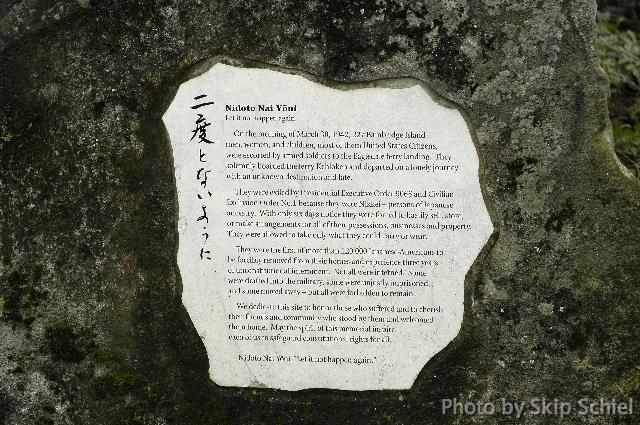 二度とないように
Nidoto Nai Yōni
Let it not happen again
On the morning of March 30, 1942, 227 Bainbridge Island
men, women, and children, most of them United States Citizens,
were escorted by armed soldiers to the Eagledale ferry landing. They
solemnly boarded the ferry Kehloken and departed on a lonely journey
with an unknown destination and fate.
They were exiled by Presidential Executive Order 9066 and Civilian
Exclusion Order No.1 because they were Nikkei – persons of Japanese
ancestry. With only six days notice they were forced to hastily sell, store,
or make arrangements for all of their possessions, businesses and property.
They were allowed to take only what they could carry or wear.
They were the first of more than 120,000 Japanese Americans to
be forcibly removed from their homes and experience three years
of unconstitutional internment. Not all were interned. Some
were drafted into the military, some were unjustly imprisoned,
and some moved away – but all were forbidden to remain.
We dedicate this site to honor those who suffered and to cherish
their friends and community who stood by them and welcomed
them home. May the spirit of this memorial inspire
each of us to safeguard constitutional rights for all.
Nidoto Nai Yōni "Let it not happen again."
Photo by Skip Schiel